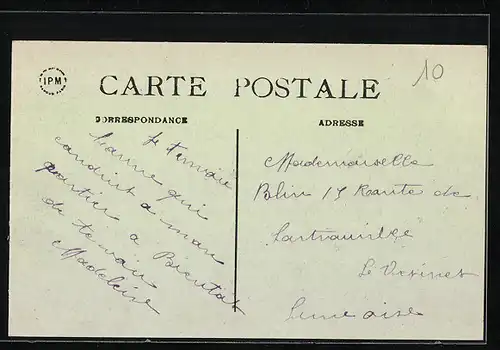 IPM
10
CARTE POSTALE
CORRESPONDANCE
ADRESSE
Je t'envoie
conduit a mon
quartier a Bientot
de te voir
Madeleine
Mademoiselle
Blin 15 Route de
Sartrouville
Le Vesinet
Seine oise